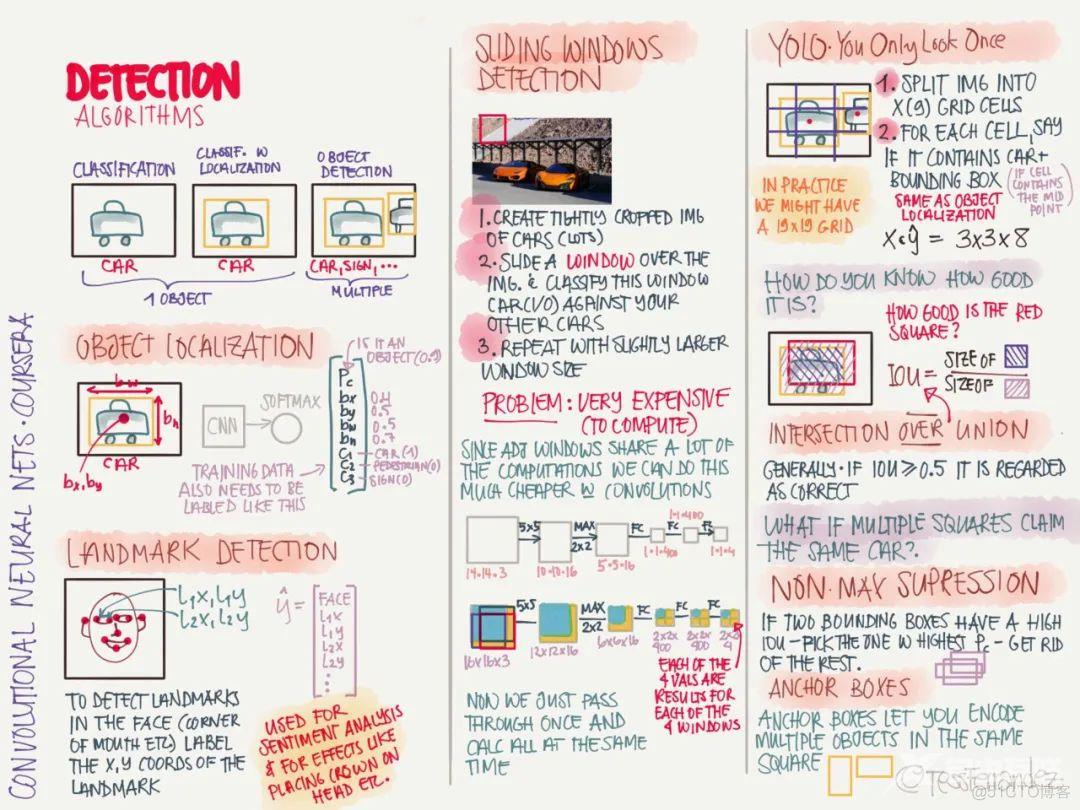 CONVOLUTIONAL NEURAL NETS · COURSERA
DETECTION
ALGORITHMS
CLASSIFICATION
CLASSIF. W
LOCALIZATION
OBJECT
DETECTION
CAR
CAR
CAR, SIGN, ...
1 OBJECT
MULTIPLE
OBJECT LOCALIZATION
bw
bh
CAR
bx, by
CNN
SOFTMAX
IS IT AN
OBJECT (0.9)
Pc
bx 0.4
by 0.5
bw 0.5
bh 0.7
C1 - CAR (1)
C2 - PEDESTRIAN (0)
C3 - SIGN (0)
TRAINING DATA
ALSO NEEDS TO BE
LABLED LIKE THIS
LANDMARK DETECTION
L1X, L1Y
L2X, L2Y
ŷ =
FACE
L1X
L1Y
L2X
L2Y
⋮
TO DETECT LANDMARKS
IN THE FACE (CORNER
OF MOUTH ETC) LABEL
THE X,Y COORDS OF THE
LANDMARK
USED FOR
SENTIMENT ANALYSIS
& FOR EFFECTS LIKE
PLACING CROWN ON
HEAD ETC.
SLIDING WINDOWS
DETECTION
1. CREATE TIGHTLY CROPPED IMG
OF CARS (LOTS)
2. SLIDE A WINDOW OVER THE
IMG. & CLASSIFY THIS WINDOW
CAR(1/0) AGAINST YOUR
OTHER CARS
3. REPEAT WITH SLIGHTLY LARGER
WINDOW SIZE
PROBLEM: VERY EXPENSIVE
(TO COMPUTE)
SINCE ADJ WINDOWS SHARE A LOT OF
THE COMPUTATIONS WE CAN DO THIS
MUCH CHEAPER W CONVOLUTIONS
5x5
MAX
2x2
FC
FC
FC
1·1·400
14·14·3
10·10·16
5·5·16
1·1·400
1·1·4
5x5
MAX
2x2
FC
FC
FC
16x16x3
12x12x16
6x6x16
2x2x
400
2x2x
400
2x2x
4
EACH OF THE
4 VALS ARE
RESULTS FOR
EACH OF THE
4 WINDOWS
NOW WE JUST PASS
THROUGH ONCE AND
CALC ALL AT THE SAME
TIME
YOLO · You Only Look Once
1. SPLIT IMG INTO
X(9) GRID CELLS
2. FOR EACH CELL, SAY
IF IT CONTAINS CAR +
BOUNDING BOX
(IF CELL
CONTAINS
THE MID
POINT)
SAME AS OBJECT
LOCALIZATION
IN PRACTICE
WE MIGHT HAVE
A 19x19 GRID
ŷ = 3x3x8
HOW DO YOU KNOW HOW GOOD
IT IS?
HOW GOOD IS THE RED
SQUARE?
IOU =
SIZE OF
SIZE OF
INTERSECTION OVER UNION
GENERALLY · IF IOU ≥ 0.5 IT IS REGARDED
AS CORRECT
WHAT IF MULTIPLE SQUARES CLAIM
THE SAME CAR?
NON·MAX SUPRESSION
IF TWO BOUNDING BOXES HAVE A HIGH
IOU - PICK THE ONE W HIGHEST Pc - GET RID
OF THE REST.
ANCHOR BOXES
ANCHOR BOXES LET YOU ENCODE
MULTIPLE OBJECTS IN THE SAME
SQUARE
@TessFerrandez
@51CTO博客